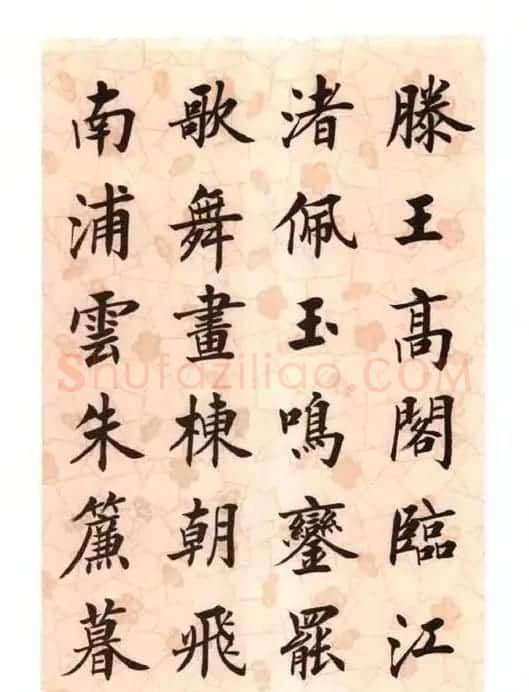 滕王高閣臨江
渚佩玉鳴鑾罷
歌舞畫棟朝飛
南浦雲朱簾暮
Shufaziliao.COM